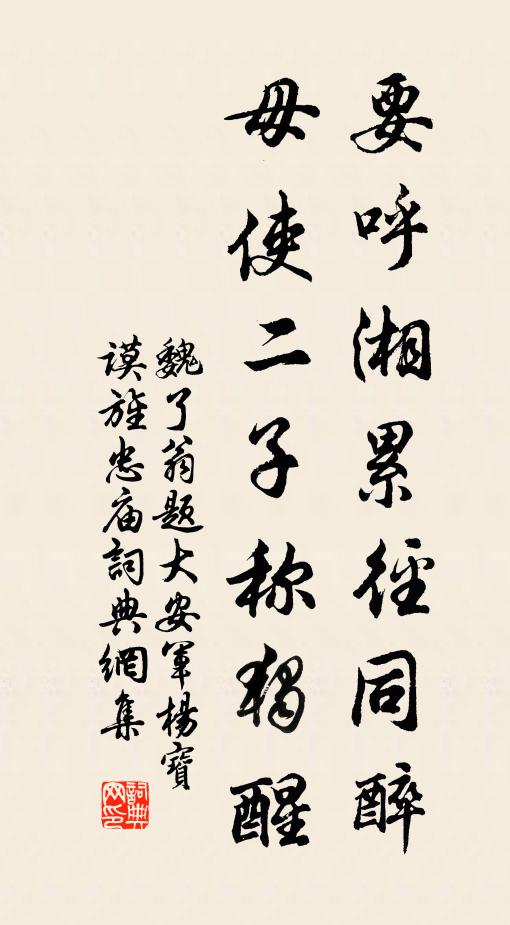 要呼湘累径同醉
毋使二子称独醒
魏了翁题大安军楊寶
謨旌忠庙詞典網集
詞典网印